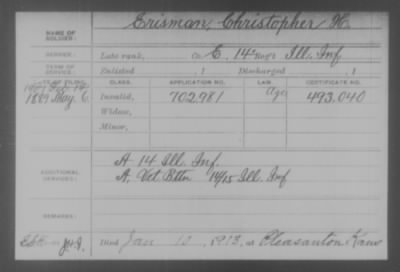 NAME OF SOLDIER: Erisman, Christopher H.
SERVICE: Late rank, Co. E, 14 Reg't Ill. Inf.
TERM OF SERVICE: Enlisted , 1 Discharged , 1
DATE OF FILING. CLASS. APPLICATION NO. LAW. CERTIFICATE NO.
1889 May 6 Invalid, 702,981 Age 493,040
Widow,
Minor,
ADDITIONAL SERVICES: A 14 Ill. Inf.
A, Vet. Bttn 14/15 Ill. Inf
REMARKS:
Died Jan 10, 1913, at Pleasanton Kans